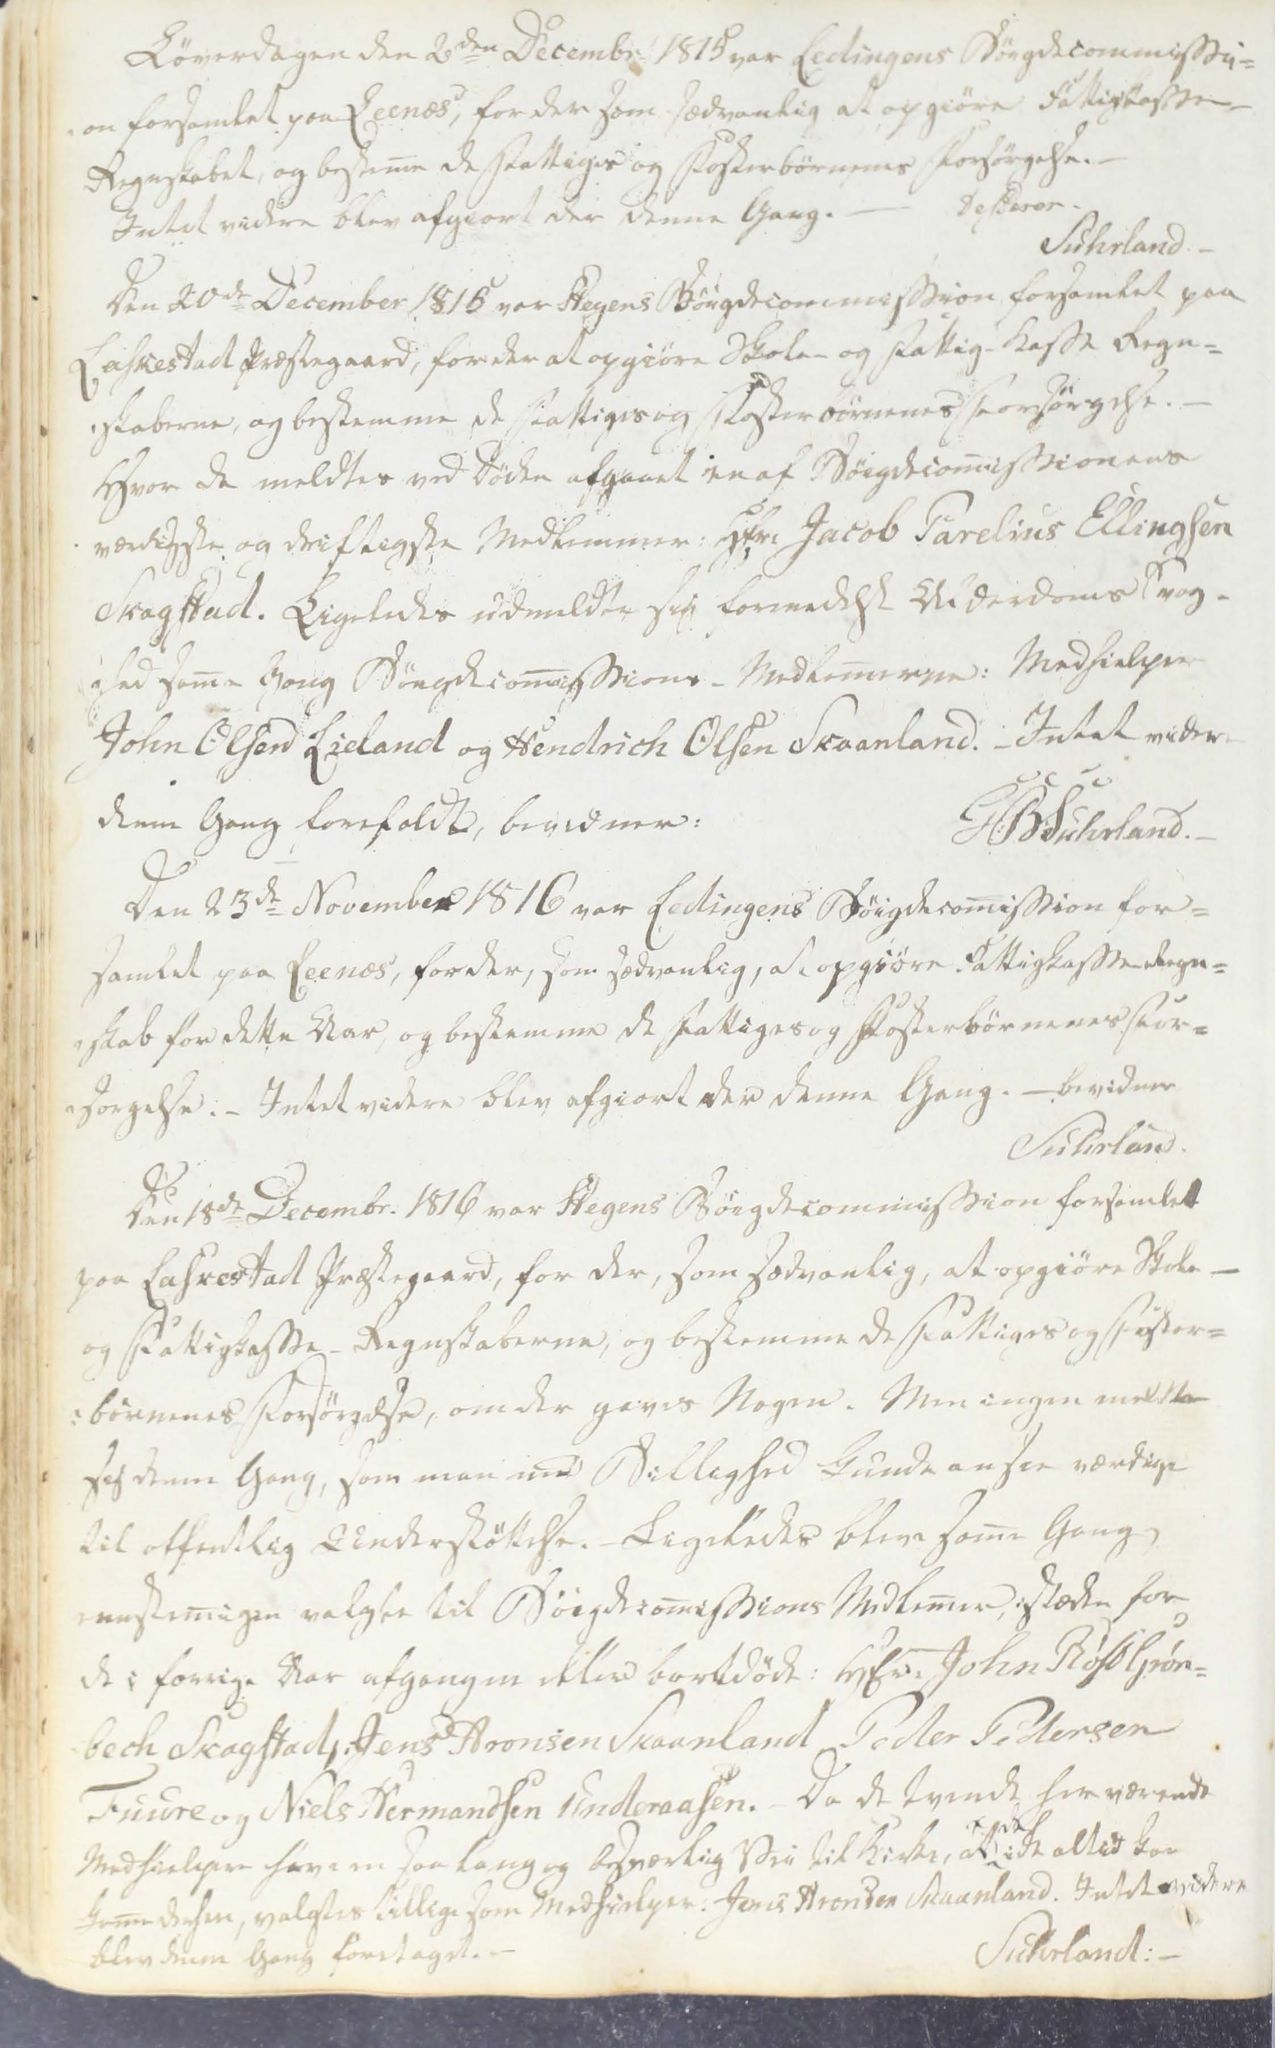 Løverdagen den 2den Decembr. 1815 var Ledingens Bøigdecommissi=
on forsamlet paa Leenæs, for der som sædvanlig at opgiøre Fattigkasse-
Regnskabet, og bestem̅e de Fattiges og Fosterbørnenes Forsørgelse. -
Intet videre blev afgiort der denne Gang. -
Suhrland. -
Den 20de December 1815 var Stegens Bøigdecommission forsamlet paa
Laskestad Præstegaard, for der at opgiøre Skole- og Fattig-Kasse Regn=
skaberne, og bestemme de Fattiges og Fosterbørnenes Forsørgelse. -
Hvor da meldtes ved Døden afgaaet en af Bøigdecom̅issionens
værdigste og driftigste Medlemmer: Hr. Jacob Parelius Ellingsen
Skagstad. Ligeledes udmeldte sig formedelst Alderdoms Svag-
hed sam̅e Gang Bøigdecom̅issions-Medlem̅erne: Medhielper
John Olsen Lieland og Hendrich Olsen Skaanland. - Intet videre
denne Gang forefaldt, bevidner:
G B Suhrland. -
Den 23de November 1816 var Ledingens Bøigdecom̅ission for=
samlet paa Leenæs, for der, som sædvanlig, at opgiøre Fattigkasse Regn=
skab for dette Aar, og bestemme de Fattiges og Fosterbørnenes For=
sørgelse. - Intet videre blev afgiort der denne Gang. - bevidner
Suhrland.
Den 18de Decembr. 1816 var Stegens Bøigdecommission forsamlet
paa Laskestad Præstegaard, for der, som sædvanlig, at opgiøre Skole-
og Fattigkasse-Regnskaberne, og bestemme de Fattiges og Foster=
børnenes Forsørgelse, om der gaves Nogen. Men ingen meldte
sig denne Gang, som man med Billighed kunde ansee værdige
til offentlig Understøttelse. - Ligeledes bleve sam̅e Gang
eenstem̅igen valgte til Bøigdecom̅issions Medlem̅er, istæden for
de i forrige Aar afgangne eller bortdøde: Hr. John Røst Grøn=
bech Skagstad, Jens Aronsen Skaanland Peder Pedersen
Fuure og Niels Hermandsen Underaasen. - Da de tvende her værende
Medhielpere have en saa lang og besværlig Vei til Kirke, at de ikke altid kan
kom̅e dertil, valgtes tillige som Medhielper: Jens Aronsen Skaanland. Intet videre
blev denne Gang foretaget. -
Suhrland: -